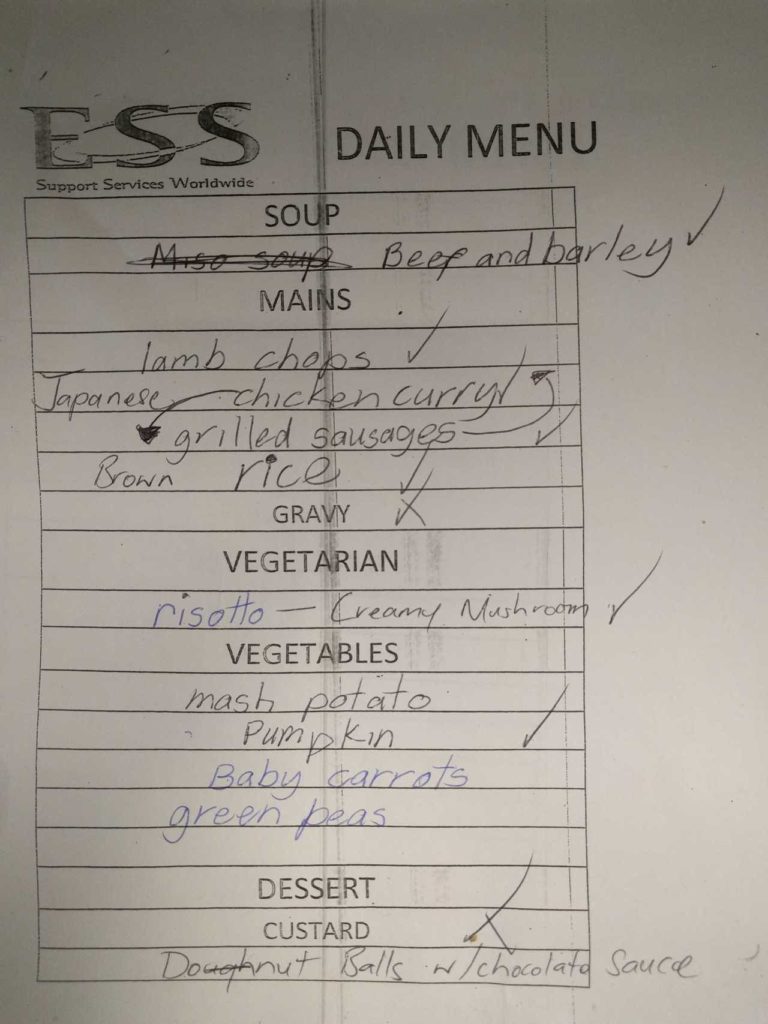 ESS
Support Services Worldwide
DAILY MENU
SOUP
Miso soup Beef and barley ✓
MAINS
lamb chops ✓
Japanese chicken curry ✓
grilled sausages ✓
Brown rice ✓
GRAVY X
VEGETARIAN
risotto — Creamy Mushroom ✓
VEGETABLES
mash potato
Pumpkin ✓
Baby carrots
green peas
DESSERT
CUSTARD X
Doughnut Balls w/chocolate Sauce